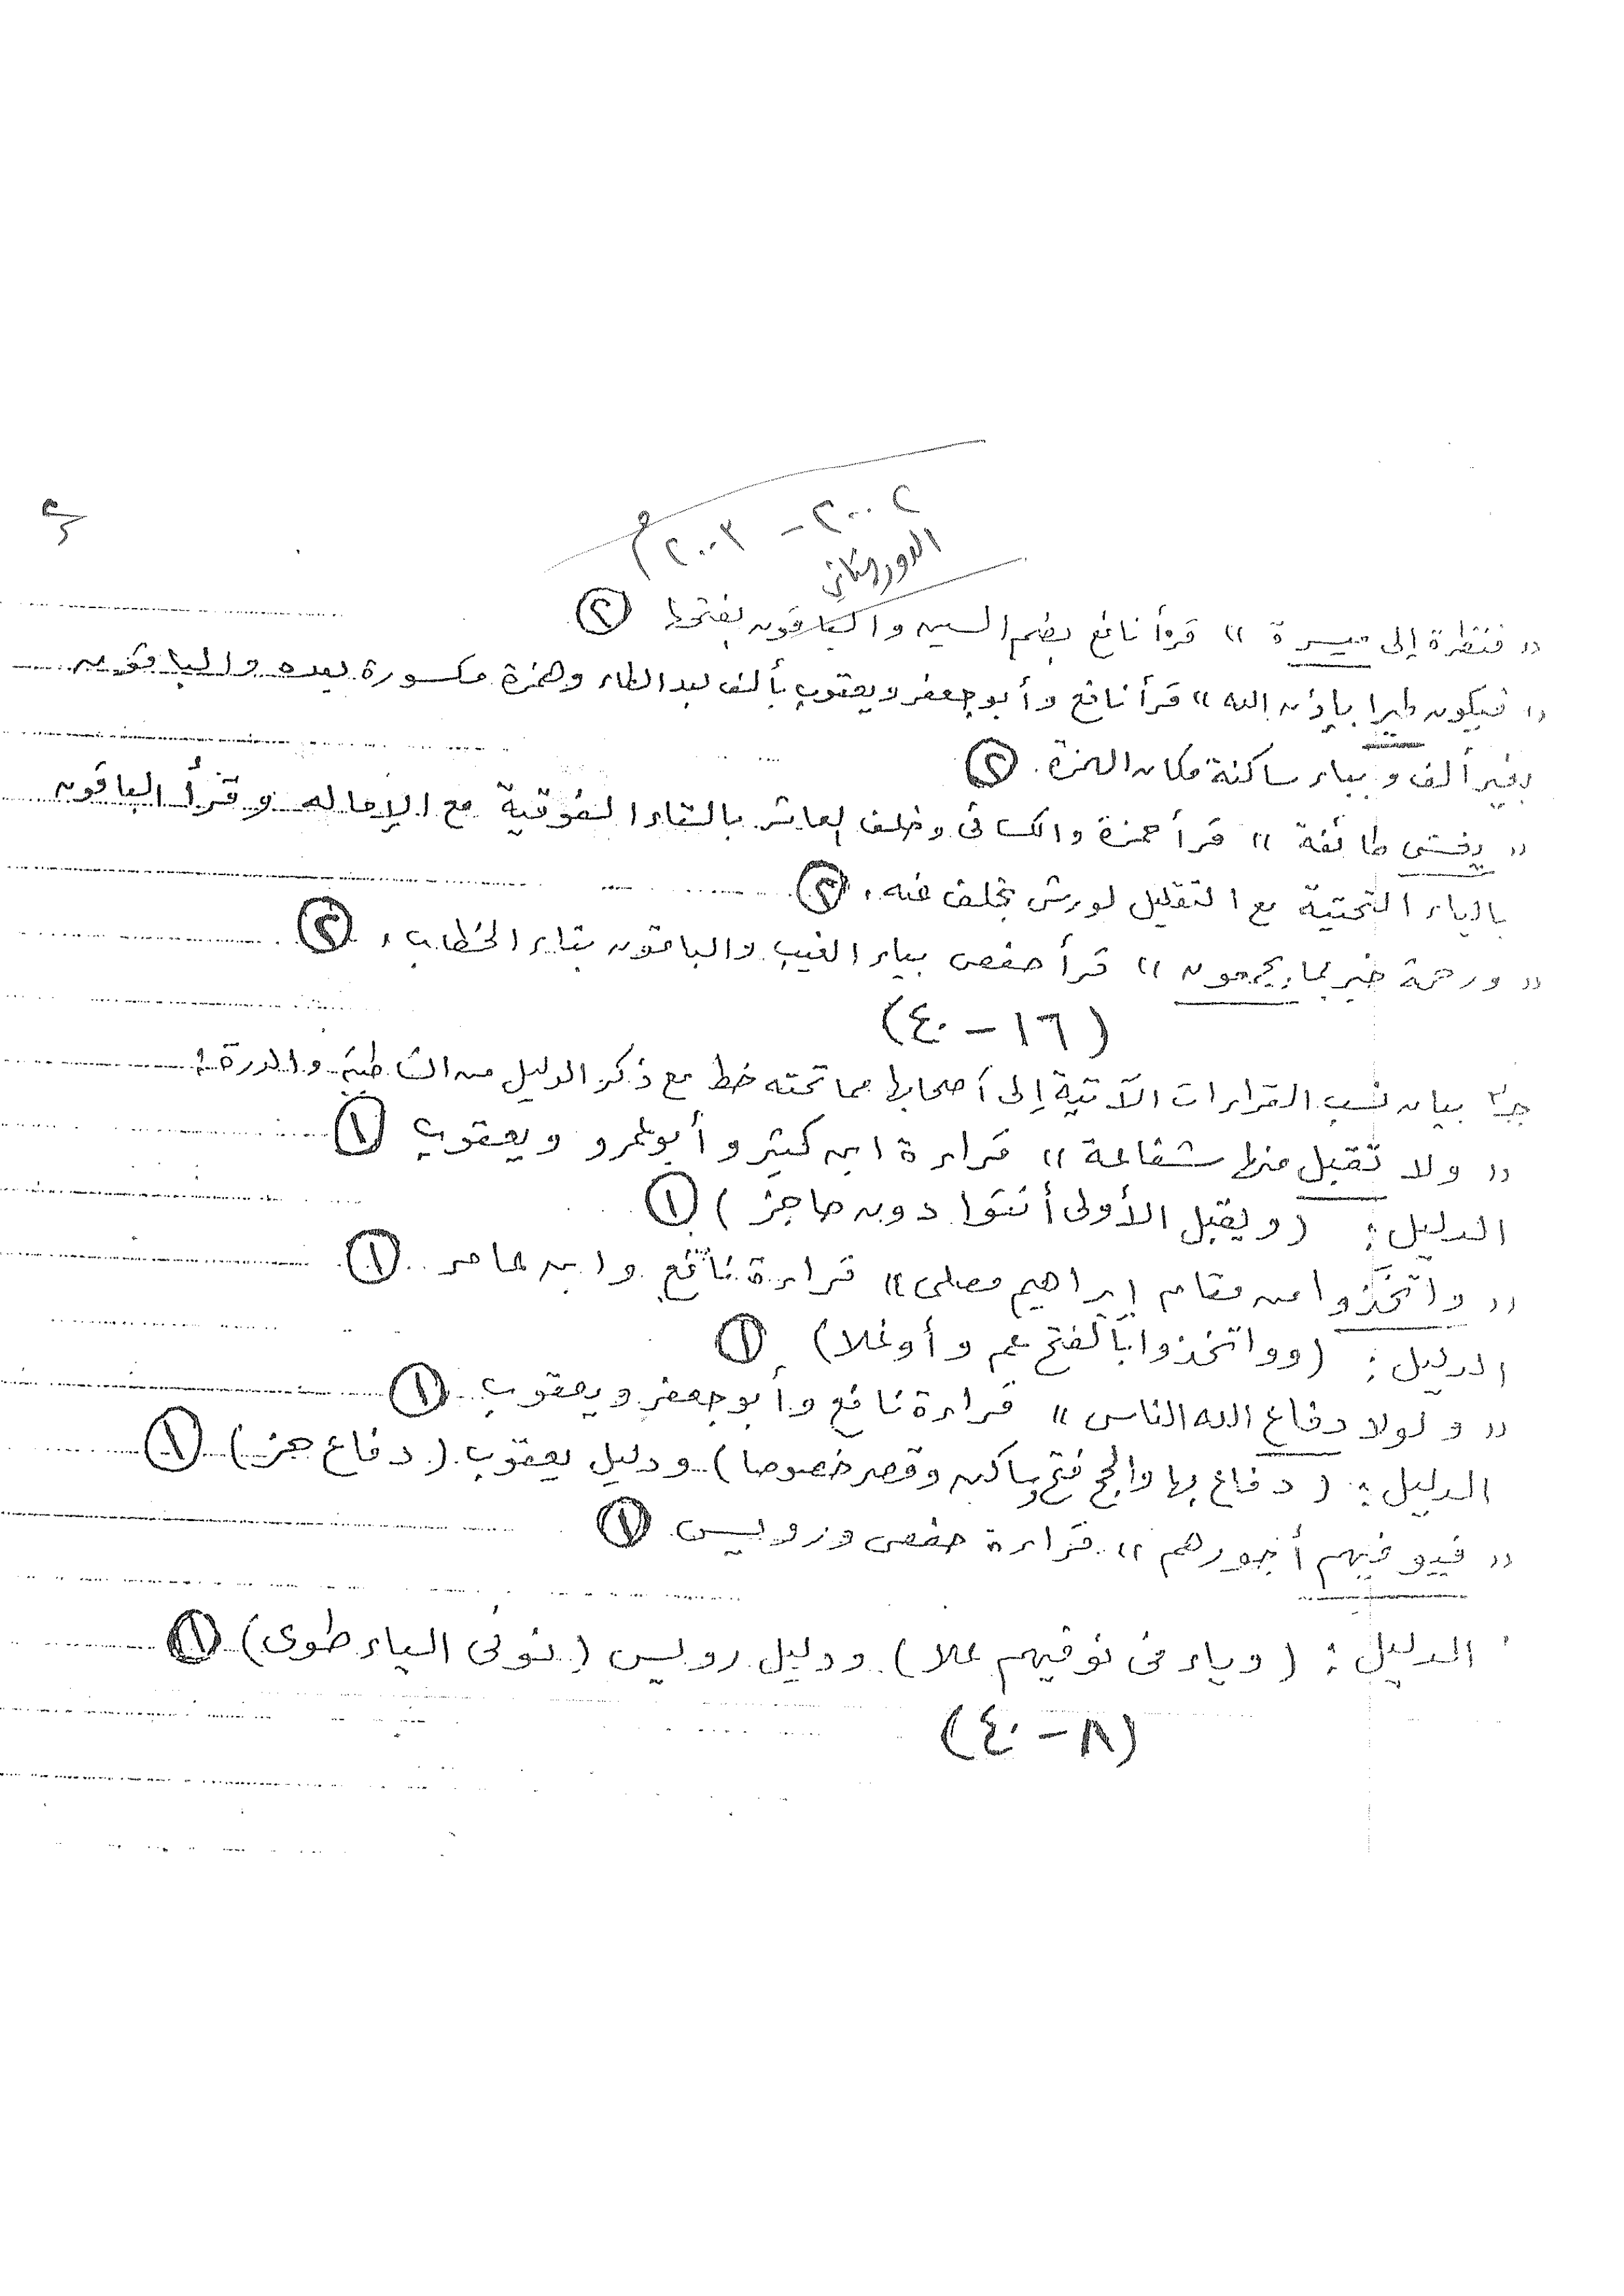 ٢٠٠٢ - ٢٠٠٣ م
الدور الثانى
« فنظرة إلى ميسرة » قرأ نافع بضم السين والباقون بفتحها (٢)
« فيكون طيرا بإذن الله » قرأ نافع وأبو جعفر ويعقوب بألف بعد الطاء وهمزة مكسورة بعده والباقون
بغير ألف وبياء ساكنة مكان الهمزة. (٢)
« يغشى طائفة » قرأ حمزة والكسائى وخلف العاشر بالتاء الفوقية مع الإماله وقرأ الباقون
بالياء التحتية مع التقليل لورش بخلف عنه. (٢)
« ورحمة خير مما يجمعون » قرأ حفص بياء الغيب والباقون بتاء الخطاب. (٢)
(١٦ - ٤٠)
جـ٣ بيان نسب القراءات الآتية إلى أصحابها مما تحته خط مع ذكر الدليل من الشاطبية والدرة:
« ولا تقبل منها شفاعة » قراءة ابن كثير وأبو عمرو ويعقوب (١)
الدليل: (ويقبل الأولى أنثوا دون حاجز) (١)
« واتخذوا من مقام إبراهيم مصلى » قراءة نافع وابن عامر (١)
الدليل: (وواتخذوا بالفتح عم وأوغلا) (١)
« ولولا دفاع الله الناس » قراءة نافع وأبو جعفر ويعقوب (١)
الدليل: (دفاع بها والحج فتح وساكن وقصر خصوصا) ودليل يعقوب (دفاع حز) (١)
« فيوفيهم أجورهم » قراءة حفص ورويس (١)
الدليل: (وياء فى نوفيهم علا) ودليل رويس (نوفى الياء طوى) (١)
(٨ - ٤٠)